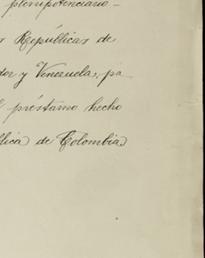 plenipotenciano-
Repúblicas de
dor y Venezuela, pa-
préstamo hecho
lica de Colombia,